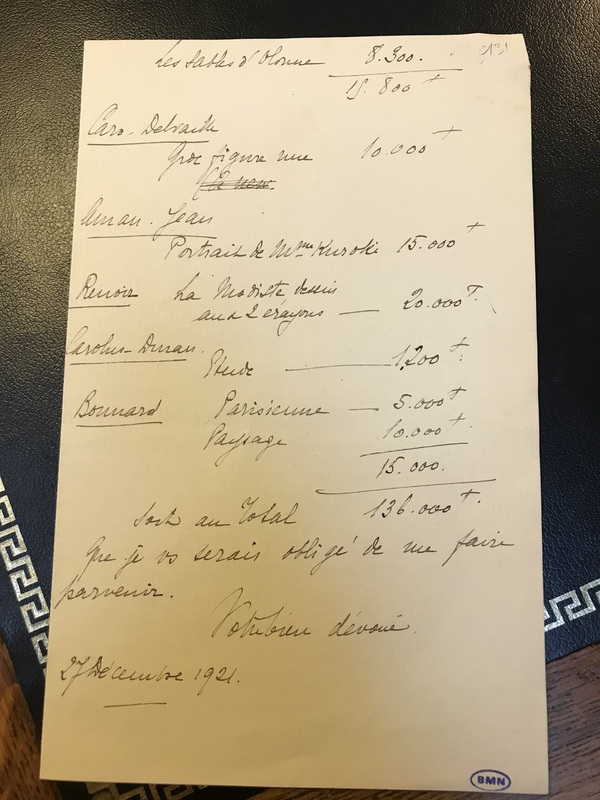 Les Sables d'Olonne 8.300.
15.800 f
Caro-Delvaille
Gde figure nue 10.000 f
Aman-Jean
Portrait de Mme Kuroki 15.000 f
Renoir La Modiste, dessin
aux 2 crayons — 20.000 f.
Carolus-Duran.
Etude — 1.200 f.
Bonnard Parisienne — 5.000 f
Paysage 10.000 f.
15.000.
Soit au Total 136.000 f.
Que je vs serais obligé de me faire
parvenir.
Votre bien dévoué.
27 Décembre 1921.
BMN